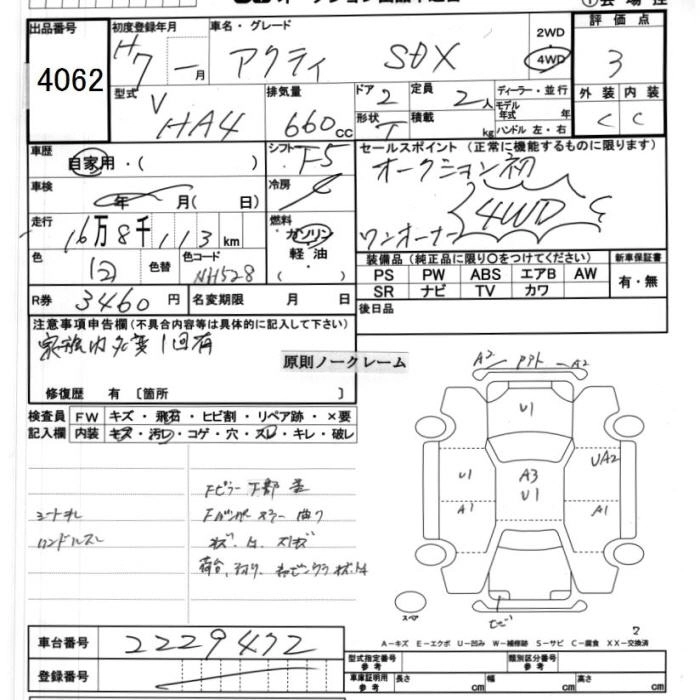 出品番号
4062
初度登録年月
H7 一月
車名・グレード
アクティ SDX
2WD
4WD
評価点
3
型式
V HA4
排気量
660 cc
ドア
2
形状
T
定員
2人
積載
kg
ディーラー・並行
モデル年式 年
ハンドル 左・右
外装 内装
C C
車歴
自家用・( )
シフト
F5
セールスポイント(正常に機能するものに限ります)
オークション初
4WD
ワンオーナー
車検
年 月( 日)
冷房
走行
16万8千113 km
燃料
ガソリン
軽油
・( )
色
白
色替
色コード
NH528
装備品(純正品に限り○をつけてください)
PS PW ABS エアB AW
SR ナビ TV カワ
新車保証書
有・無
R券
3460 円
名変期限 月 日
後日品
注意事項申告欄(不具合内容等は具体的に記入して下さい)
家族内名変1回有
原則ノークレーム
修復歴 有 〔箇所 〕
検査員記入欄
FW キズ・飛石・ヒビ割・リペア跡・×要
内装 キズ・汚レ・コゲ・穴・スレ・キレ・破レ
シートヨレ
ハンドルスレ
Fピラー下部
A2 A2
U1
U1
A1
A3
U1
UA2
A1
スペア
車台番号
2229472
登録番号
A-キズ E-エクボ U-凹み W-補修跡 S-サビ C-腐食 XX-交換済
型式指定番号
参考
類別区分番号
参考
車庫証明用
参考
長さ cm
幅 cm
高さ cm